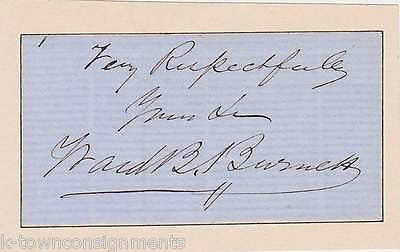 Very Respectfully
Yours &c
Ward B Burnett
k-townconsignments